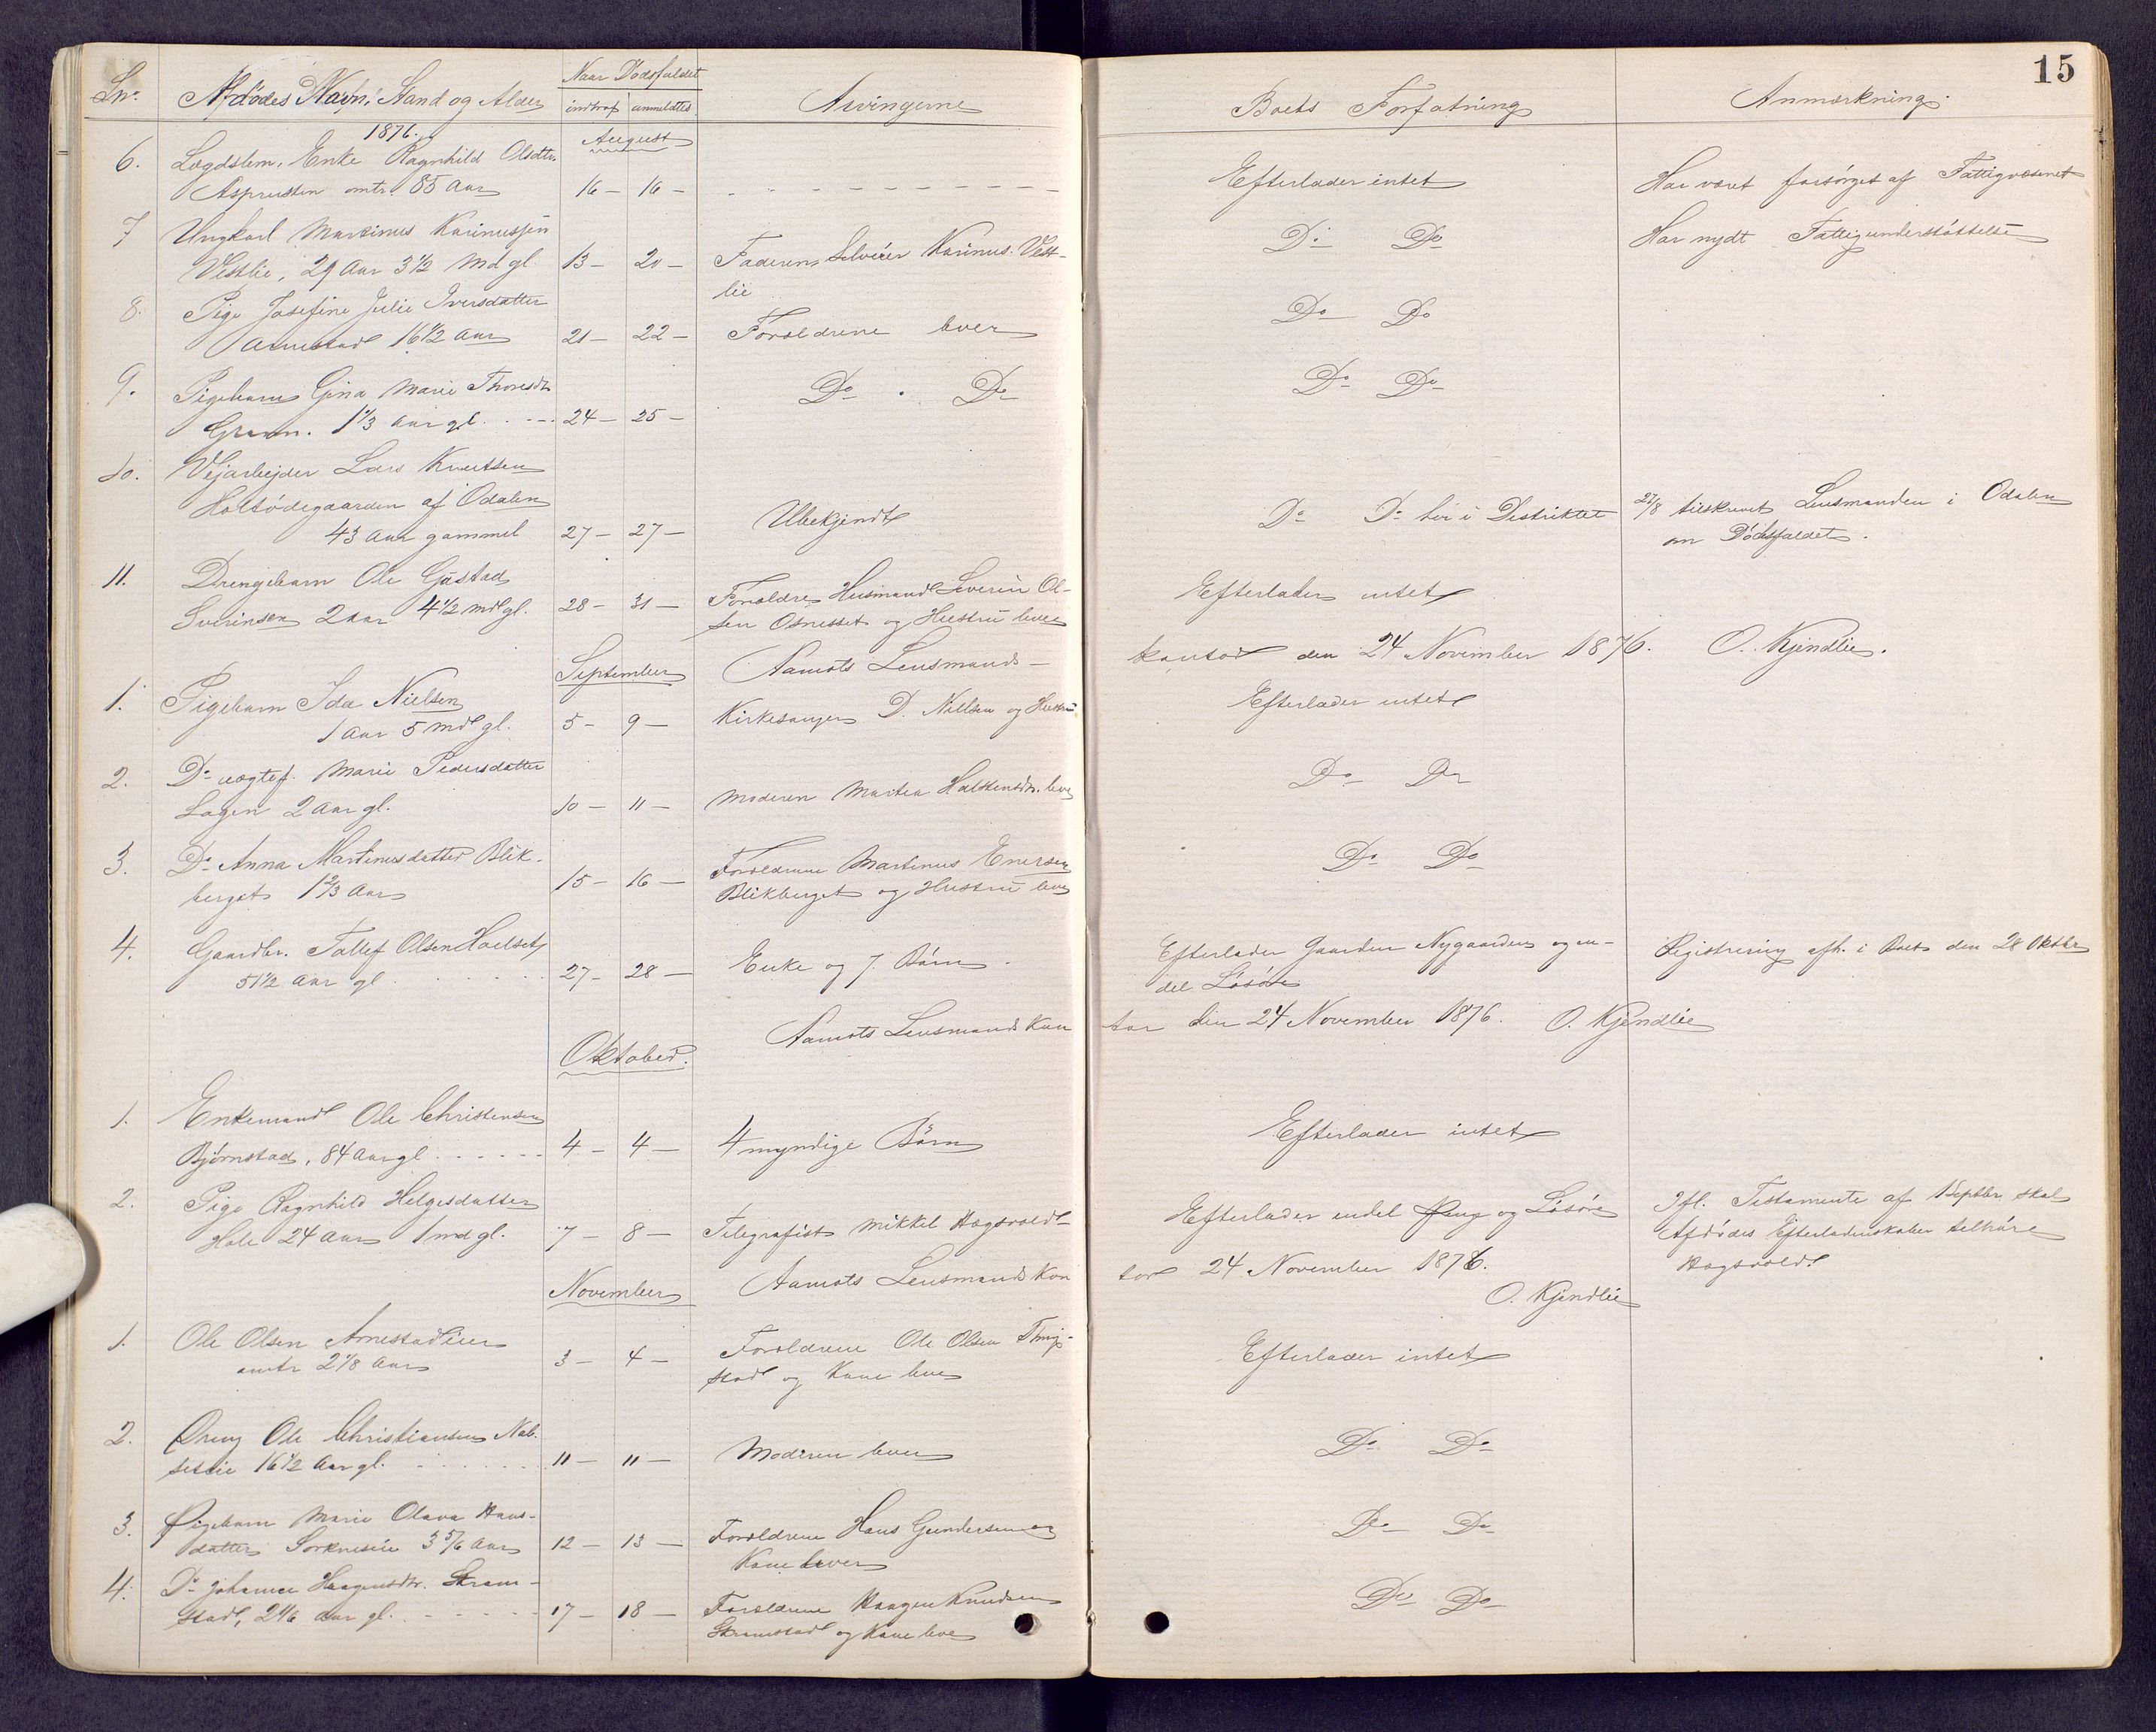 15
Lnº. Afdødes Navn, Stand og Alder Naar Dødsfaldet Arvingerne Boets Forfatning Anmærkning.
indtraf anmeldtes
1876. August
6. Lægdslem, Enke Ragnhild Olsdtr. Efterlader intet Har været forsørget af Fattigvæsenet
Asprusten omtr. 85 Aar 16 — 16 —
7 Ungkarl Martinus Karinussen Do Do Har nydt Fattigunderstøttelse
Vestlie, 29 Aar 3 1/2 Md gl. 13 — 20 — Faderen Selveier Karinus Vest-
lie
8. Pige Josefine Julie Iversdatter Do Do
Arnestad 16 1/2 Aar 21 — 22 — Forældrene lever
9. Pigebarn Gina Marie Thoresdtr Do . Do Do Do
Gravn. 1 1/3 Aar gl. 24 — 25 —
10. Vejarbejder Lars Knutsen
Holtødegaarden af Odalen Ubekjendt Do Do her i Distriktet 27/8 tilskrevet Lensmanden i Odalen
43 Aar gammel 27 — 27 — om Dødsfaldet.
11. Drengebarn Ole Gjøstad Efterlader intet
Sverinsen 2 Aar 4 1/2 mdl gl. 28 — 31 — Forældre Husmand Severin Ol-
sen Osnesset og Hustru lever
September Aamots Lensmands- kontor den 24 November 1876. O. Kjendlie.
1. Pigebarn Ida Nielsen Efterlader intet
1 Aar 5 mdl gl. 5 — 9 — Kirkesanger D. Nielsen og Hustru
2. Do uægtef. Marie Pedersdatter Do Do
Lagen 2 Aar gl. 10 — 11 — Moderen Martea Halstensdtr. lever
3. Do Anna Martinusdatter Blik- Do Do
berget 1 2/3 Aar 15 — 16 — Forældrene Martinus Enersen
Blikberget og Hustru lever
4. Gaardbr. Tollef Olsen Hoelset Efterlader Gaarden Nygaarden og en- Registrering afh. i Boet den 28 Oktbr
51 1/2 Aar gl 27 — 28 — Enke og 7 Børn. del Løsøre
Aamots Lensmands Kon tor den 24 November 1876. O. Kjendlie
Oktober.
1. Enkemand Ole Christensen Efterlader intet
Bjørnstad, 84 Aar gl. 4 — 4 — 4 myndige Børn
2. Pige Ragnhild Helgesdatter Efterlader endel Peng og Løsøre Ifl. Testamente af 1 Septbr. skal
Hole 24 Aar 1 md gl. 7 — 8 — Telegrafist Mikkel Hagsvold Afdødes Efterladenskaber tilhøre
Hagsvold
November Aamots Lensmands Kon tor 24 November 1876.
O. Kjendlie
1. Ole Olsen Arnestadlien Efterlader intet
omtr 2 1/8 Aar 3 — 4 — Forældrene Ole Olsen
stad og Kone lever
2. Dreng Ole Christiansen Nab- Do Do
setlie 16 1/2 Aar gl. 11 — 11 — Moderen lever
3. Pigebarn Marie Olava Hans- Do Do
datter Sorknesie 3 5/6 Aar 12 — 13 — Forældrene Hans Gundersen og
Kone lever
4. Do Johanne Haagensdtr. Skram- Do Do
stad, 2 1/6 Aar gl. 17 — 18 — Forældrene Haagen Knudsen
Skramstad og Kone lever